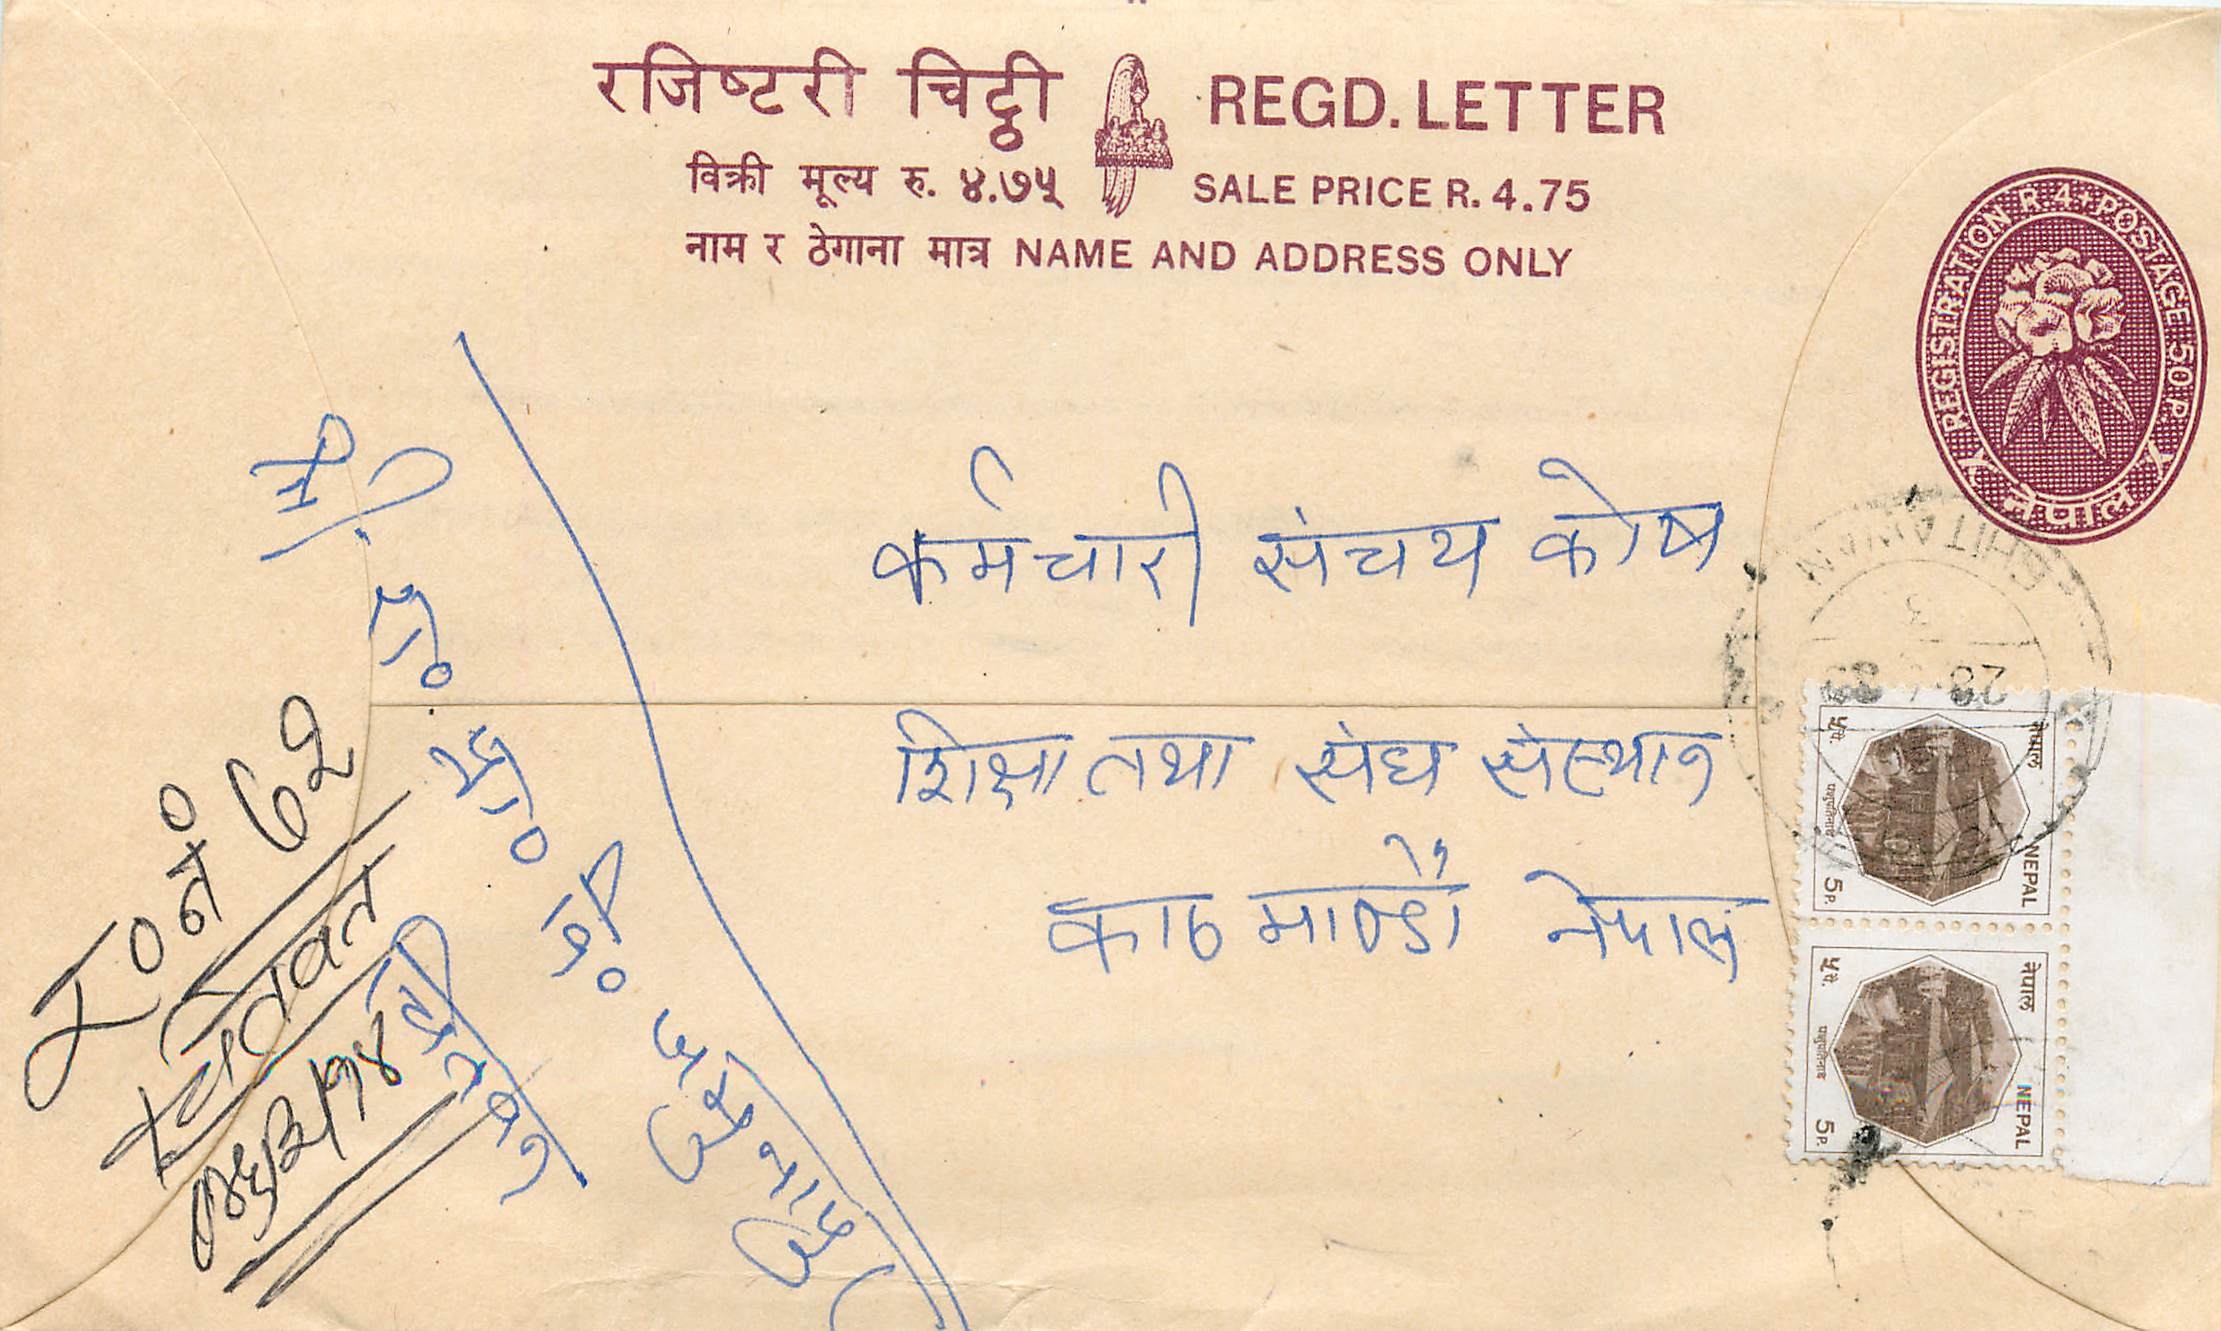 रजिष्टरी चिट्ठी REGD. LETTER
विक्री मूल्य रु. ४.७५ SALE PRICE R. 4.75
नाम र ठेगाना मात्र NAME AND ADDRESS ONLY
REGISTRATION R 4+POSTAGE 50 P.
नेपाल
कर्मचारी संचय कोष
शिक्षा तथा संघ संस्थान
काठमाण्डौं नेपाल
चितवन
र०नं० ७२
चितवन
CHITAWAN
28
नेपाल
NEPAL
५ पै.
पशुपतिनाथ
5 P.
नेपाल
NEPAL
५ पै.
पशुपतिनाथ
5 P.